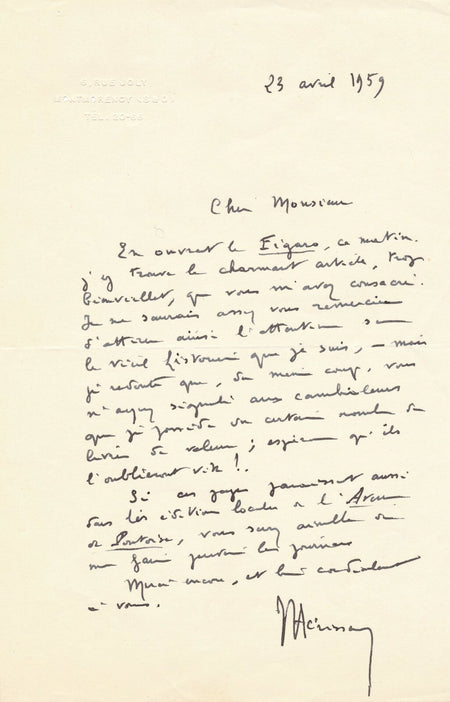 5, RUE JOLY
MONTMORENCY
TEL. 20-66
23 avril 1959
Cher Monsieur
En ouvrant le Figaro, ce matin,
j'y trouve le charmant article, trop
bienveillant, que vous m'avez consacré.
Je ne saurais assez vous remercier
d'attirer ainsi l'attention sur
le vieil historien que je suis, – mais
je redoute que, du même coup, vous
n'ayez signalé aux cambrioleurs
que je possède un certain nombre de
livres de valeur ; espérons qu'ils
l'oublieront vite !..
Si ces pages paraissent aussi
dans les éditions locales de l'Avenir
de Pontoise, vous serez aimable de
me faire parvenir les journaux
Merci encore, et bien cordialement
à vous.